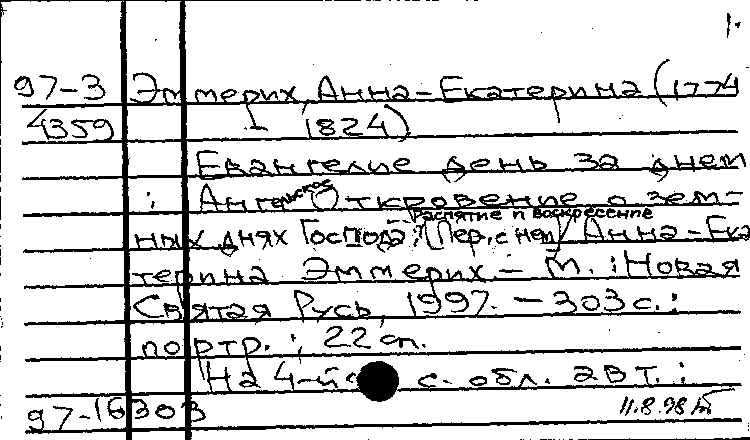 1.
97-3 Эммерих, Анна-Екатерина (1774
4359 - 1824)
Евангелие день за днем
: Ангельское Откровение о зем-
Распятие и воскресение
ных днях Господа: [Пер. с нем] / Анна-Ека
терина Эммерих. - М. : Новая
Святая Русь, 1997. - 303 с. :
портр. ; 22 см.
На 4-й с. обл. авт. :
97-16303
11.8.98